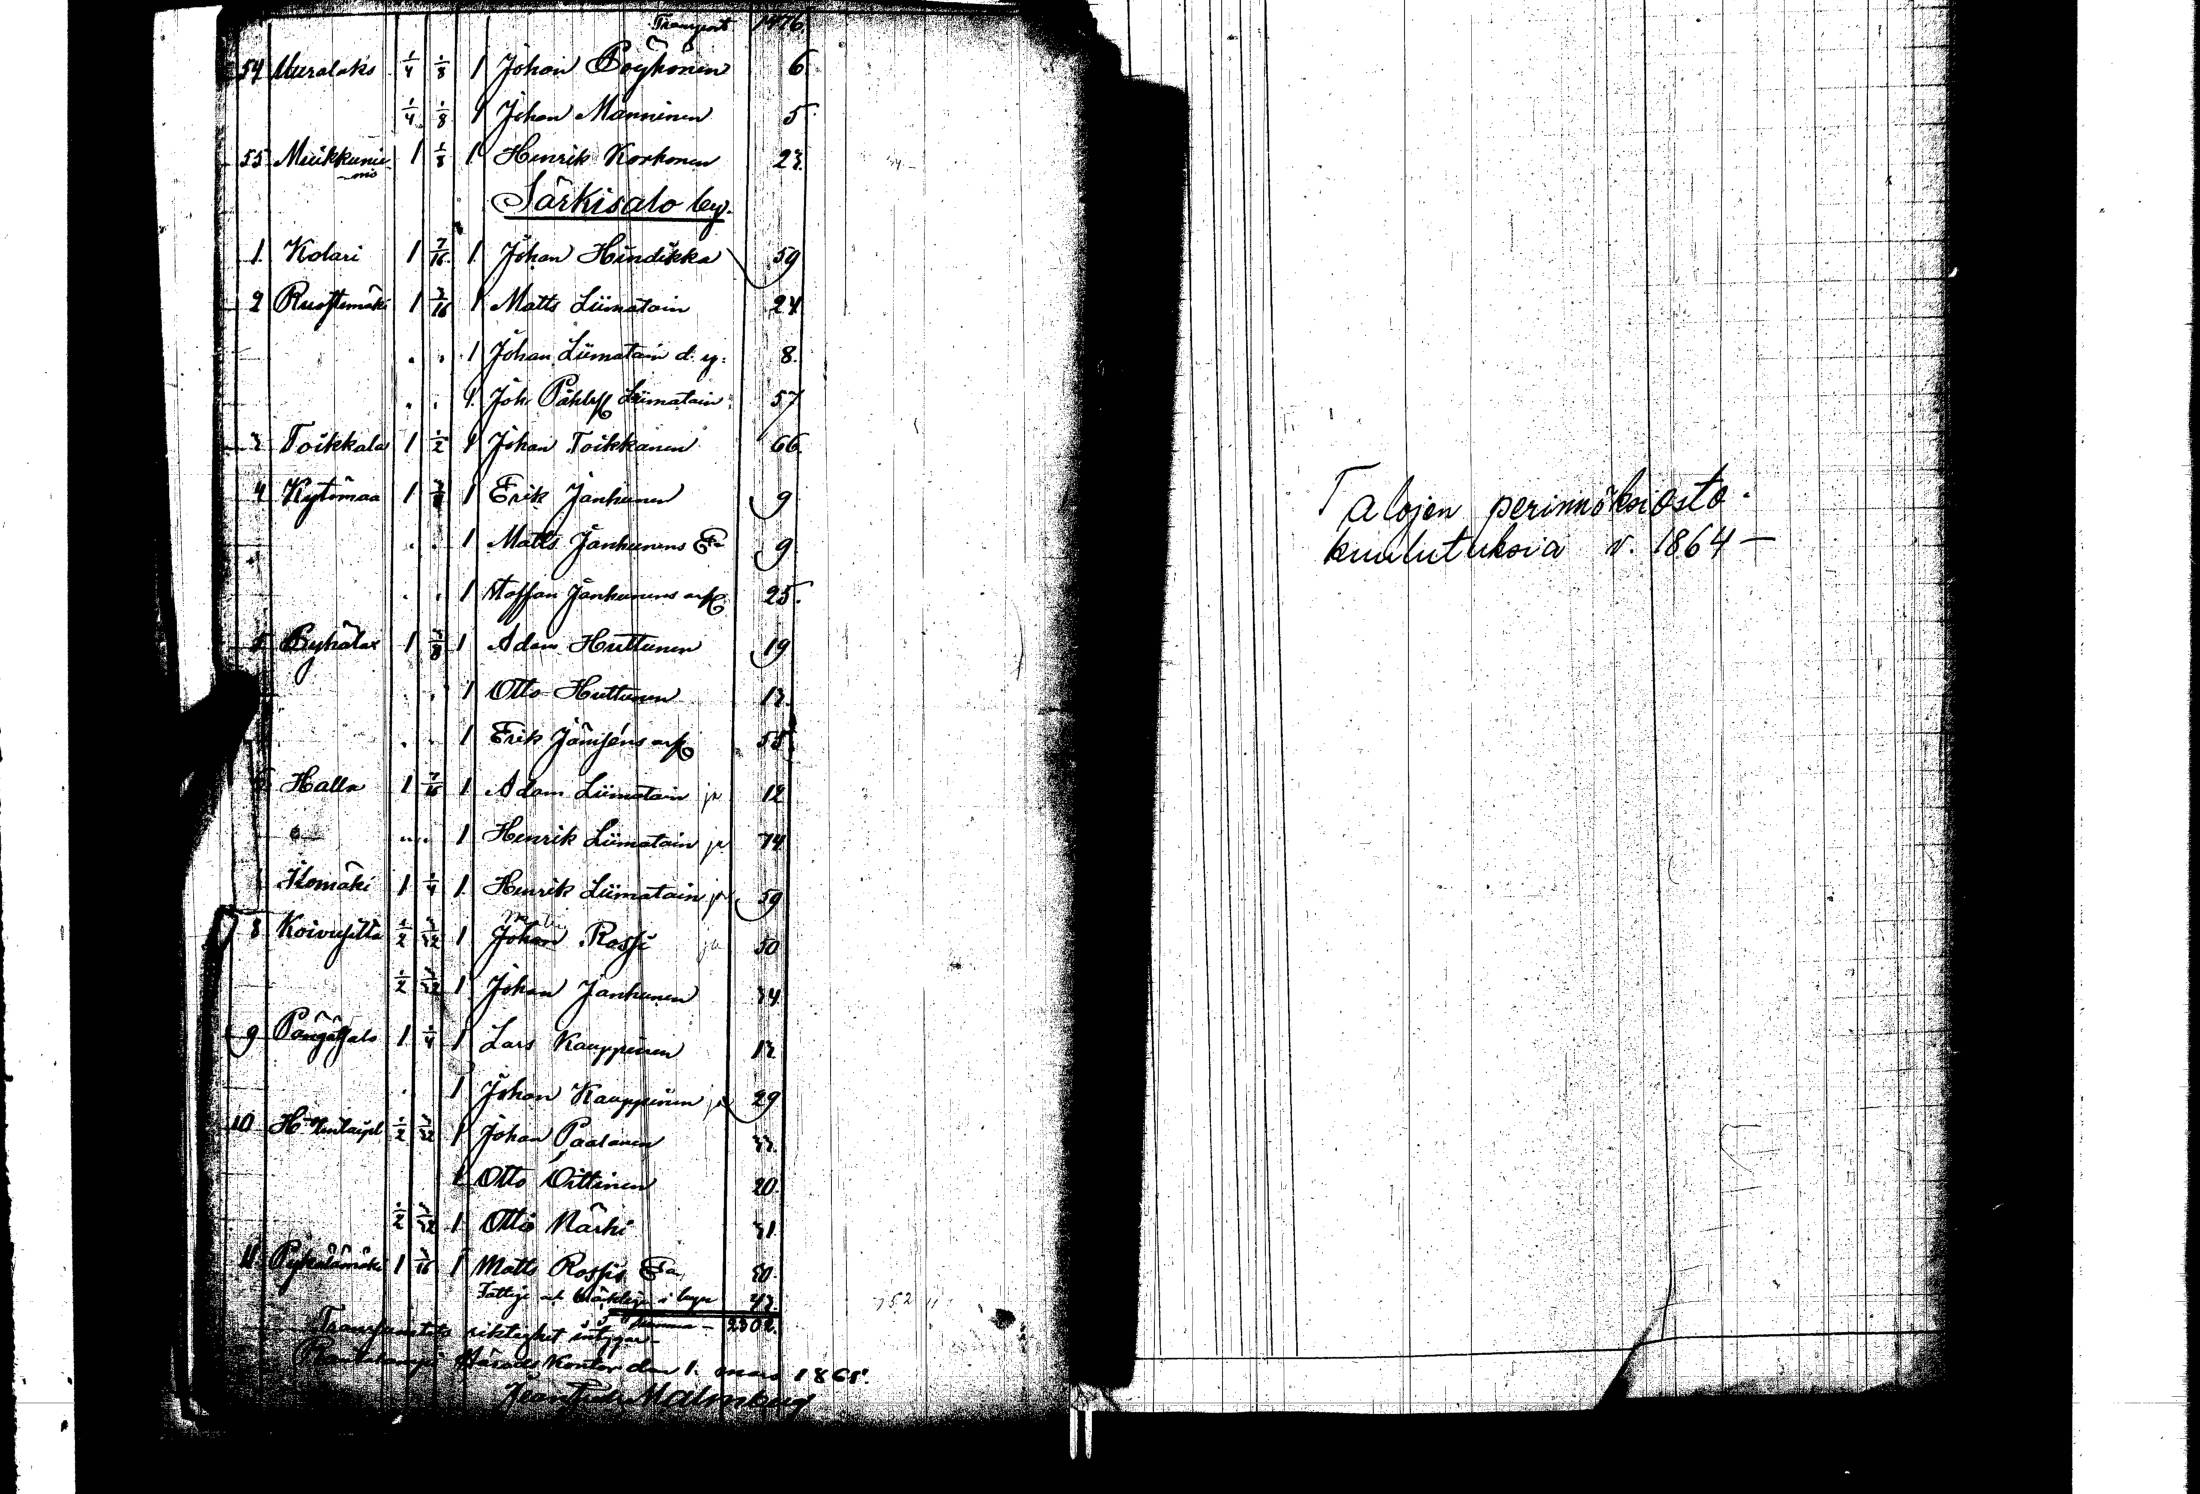 Transport 1476.
54 Uuralaks 1/4 1/8 1 Johan Pöyhönen 6.
1/4 1/8 1 Johan Manninen 5.
55 Muikkunie- 1 1/8 1 Henrik Korhonen 23.
mi
Särkisalo by.
1. Kolari 1 7/16 1 Johan Hindikka 59
2 Ruostemäki 1 3/16 1 Matts Liimatain 24
" " 1 Johan Liimatain d. y. 8.
" " 1 Joh. Påhlss Liimatain 57
3 Toikkala 1 1/2 1 Johan Toikkanen 66.
4 Kytömaa 1 3/8 1 Erik Janhunen 9
" " 1 Matts Janhunens Ea 9
" " 1 Staffan Janhunens arf. 25.
5 Pyhälax 1 3/8 1 Adam Huttunen 19
" " 1 Otto Huttunen 13.
" " 1 Erik Jämséns arf.
6 Halla 1 7/16 1 Adam Liimatain ja 12
" " 1 Henrik Liimatain ja 74
Ilomäki 1 1/4 1 Henrik Liimatain ja 59
8 Koivusilta 1/2 3/32 1 Johan Rossi ja 50
1/2 3/32 1 Johan Janhunen 34
9 1 1/4 1 Lars Kauppinen 13
" 1 Johan Kauppinen ja 29
10 1/2 3/32 1 Johan Paalanen 33.
1 Otto Oittinen 20.
1/2 3/32 1 Otto Närhi 31
11. Pykälämäki 1 3/16 1 Matts Rossis Ea 30.
Fattige och bräcklige i byn 43.
Summa 2302.
riktighet intygar
Rautalampi Härads Kontor den 1. mars 1865.
Malmberg
Talojen perinnöksiosto-
kuulutuksia v. 1864 —